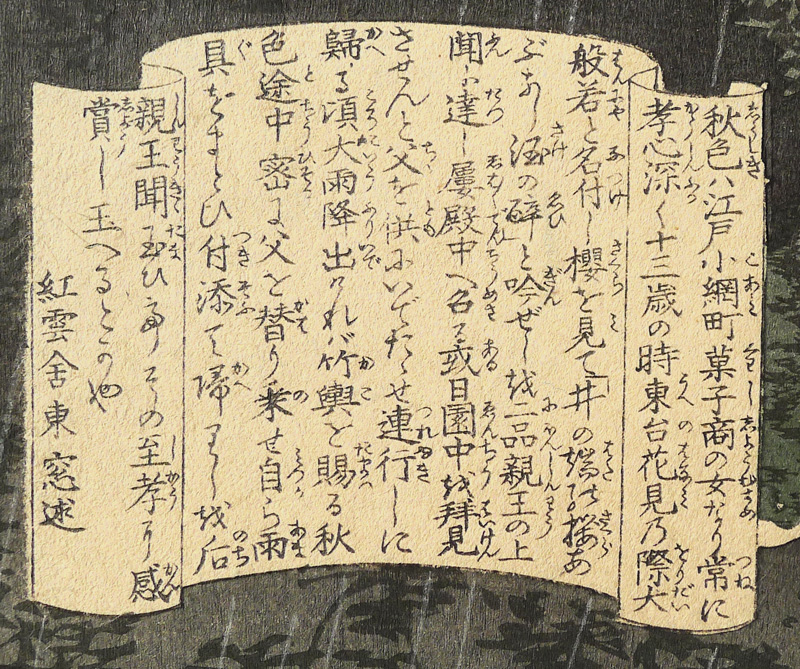 秋色ハ江戸小網町菓子商の女なり常に
孝心深く十三歳の時東台花見乃際大
般若と名付し櫻を見て「井の端の桜あ
ぶなし酒の酔」と吟ぜしを一品親王の上
聞に達し屡殿中へ召る或日園中を拝見
させんと父を供にいでたゝせ連行しに
歸る頃大雨降出けれバ竹輿を賜る秋
色途中密に父を替り乗せ自ら雨
具をまとひ付添て帰りしを后
親王聞玉ひ その至孝を感
賞し玉へるとかや
紅雲舎東窓述